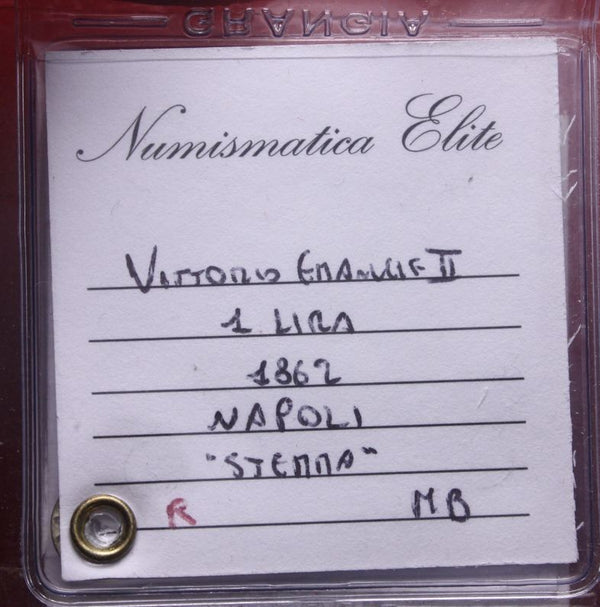 GRANGIA
Numismatica Elite
VITTORIO EMANUELE II
1 LIRA
1862
NAPOLI
"STEMMA"
R MB